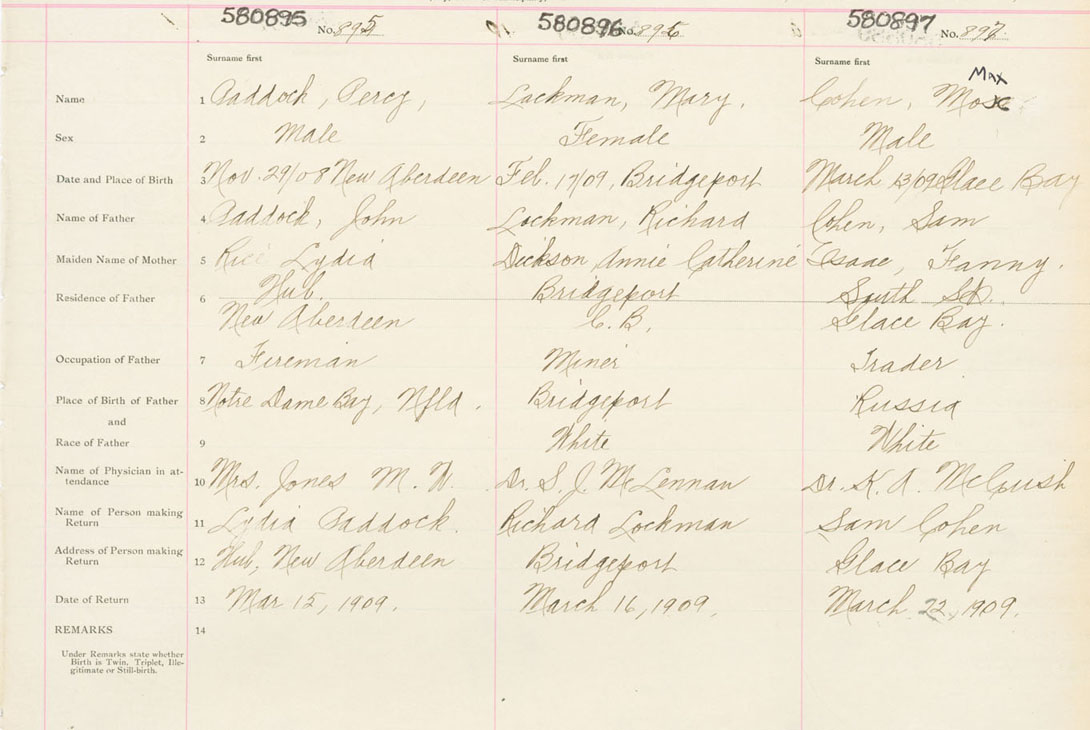 580895 No. 895 580896 No. 896 580897 No. 897
Surname first Surname first Surname first
Max
Name 1 Paddock, Percy, Lockman, Mary. Cohen,
Sex 2 Male Female Male
Date and Place of Birth 3 Nov. 29/08 New Aberdeen Feb. 17/09, Bridgeport March 13/09 Glace Bay
Name of Father 4 Paddock, John Lockman, Richard Cohen, Sam
Maiden Name of Mother 5 Rice Lydia Dickson Annie Catherine Isaac, Fanny.
Residence of Father 6 Hub. Bridgeport South St.
New Aberdeen C. B. Glace Bay.
Occupation of Father 7 Fireman Miner Trader
Place of Birth of Father 8 Notre Dame Bay, Nfld. Bridgeport Russia
and
Race of Father 9 White White
Name of Physician in at-
tendance 10 Mrs. Jones M. W. Dr. S. J. McLennan Dr. K. A. McCuish
Name of Person making
Return 11 Lydia Paddock. Richard Lockman Sam Cohen
Address of Person making
Return 12 Hub, New Aberdeen Bridgeport Glace Bay
Date of Return 13 Mar 15, 1909. March 16, 1909. March 22, 1909.
REMARKS 14
Under Remarks state whether
Birth is Twin, Triplet, Ille-
gitimate or Still-birth.